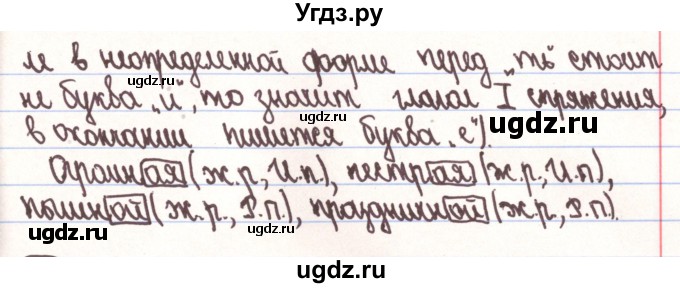 Угдз.ру
ле в неопределенной форме перед „ть" стоит
не буква „и", то значит глагол I спряжения,
в окончании пишется буква „е").
Огромная (ж.р., И.п), пестрая (ж.р., И.п),
пышной (ж.р., Р.п.), праздничной (ж.р., Р.п).
ugdz.ru
ugdz.ru
ugdz.ru
ugdz.ru
ugdz.ru
ugdz.ru
ugdz.ru